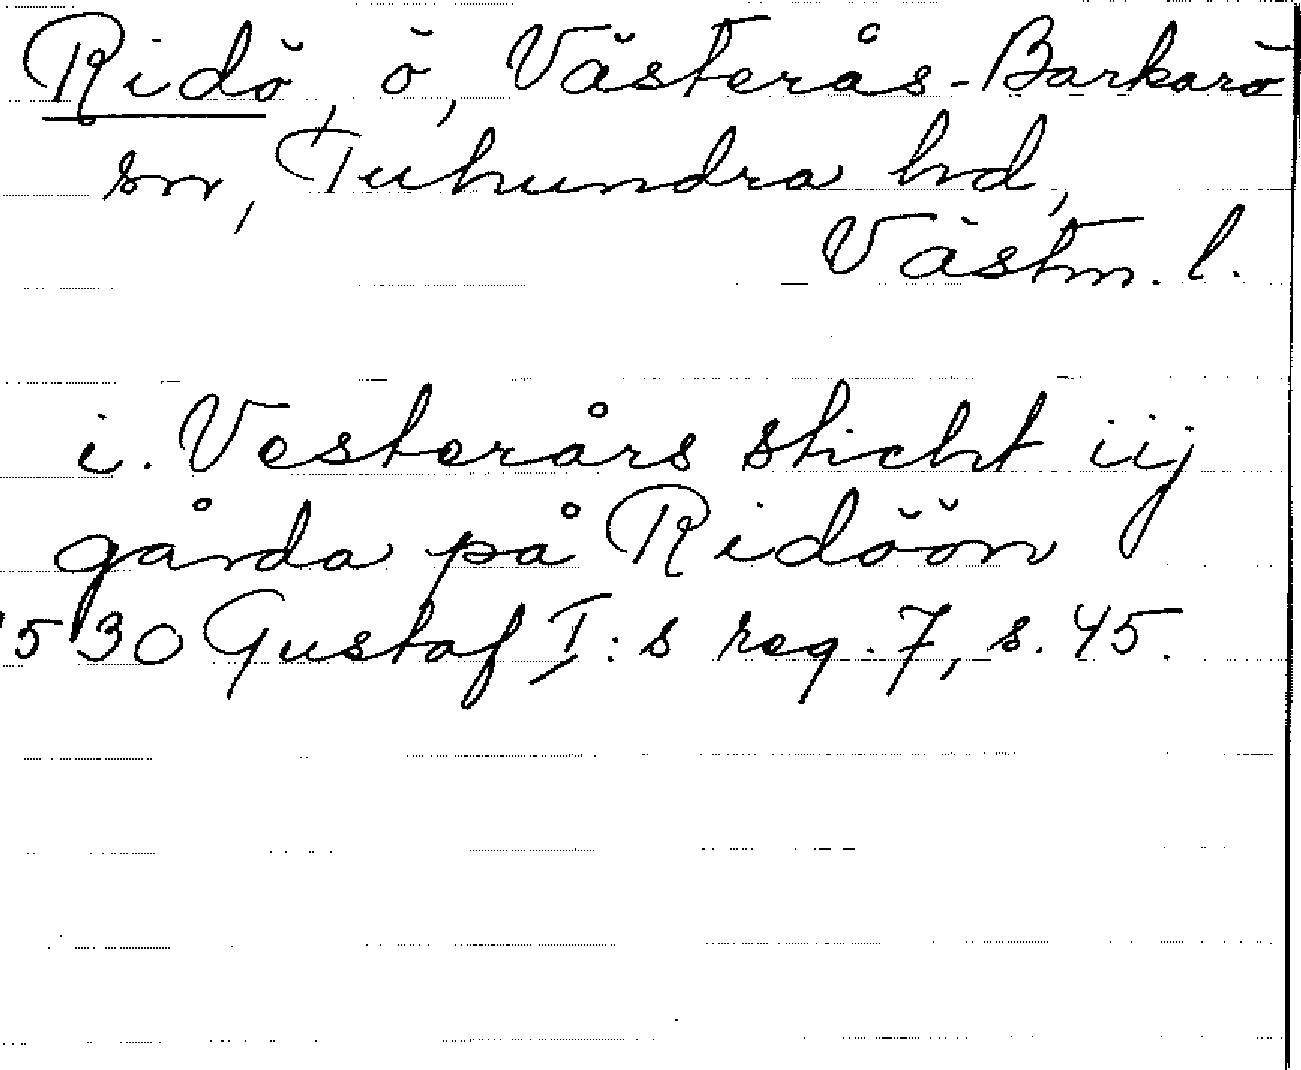 Ridö, ö, Västerås-Barkarö
sn, Tuhundra hd,
Västm. l.
i. Vesterårs sticht iij
gårda på Ridöön
1530 Gustaf I:s reg. 7, s. 45.